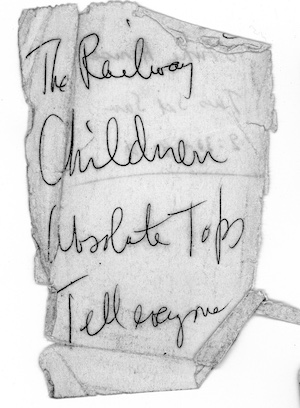 The Railway
Children
Absolute Tops
Tell everyone